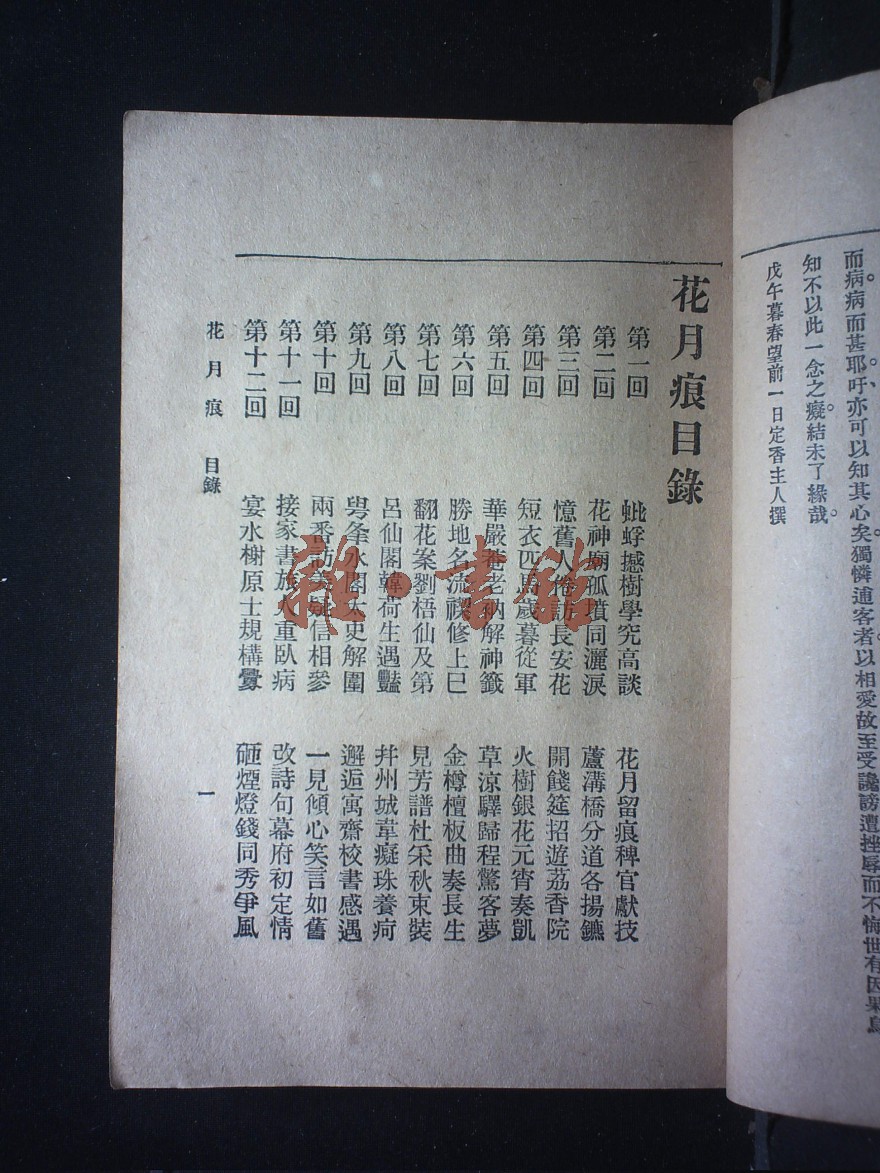 而病病而甚耶吁亦可以知其心矣獨憐逋客者以相愛故至受讒謗遭挫辱而不悔世有因果烏
知不以此一念之癡結未了緣哉
戊午暮春望前一日定香主人撰
花月痕目錄
第一回 蚍蜉撼樹學究高談 花月留痕稗官獻技
第二回 花神廟孤墳同灑淚 蘆溝橋分道各揚鑣
第三回 憶舊人倦訪長安花 開餞筵招遊荔香院
第四回 短衣匹馬歲暮從軍 火樹銀花元宵奏凱
第五回 華嚴菴老衲解神籤 草涼驛歸程驚客夢
第六回 勝地名流禊修上巳 金樽檀板曲奏長生
第七回 翻花案劉梧仙及第 見芳譜杜采秋束裝
第八回 呂仙閣韓荷生遇豔 幷州城韋癡珠養疴
第九回 甹夆水閣太史解圍 邂逅寓齋校書感遇
第十回 兩番訪美疑信相參 一見傾心笑言如舊
第十一回 接家書旅人重臥病 改詩句幕府初定情
第十二回 宴水榭原士規構釁 砸煙燈錢同秀爭風
花月痕 目錄 一
雜·書館